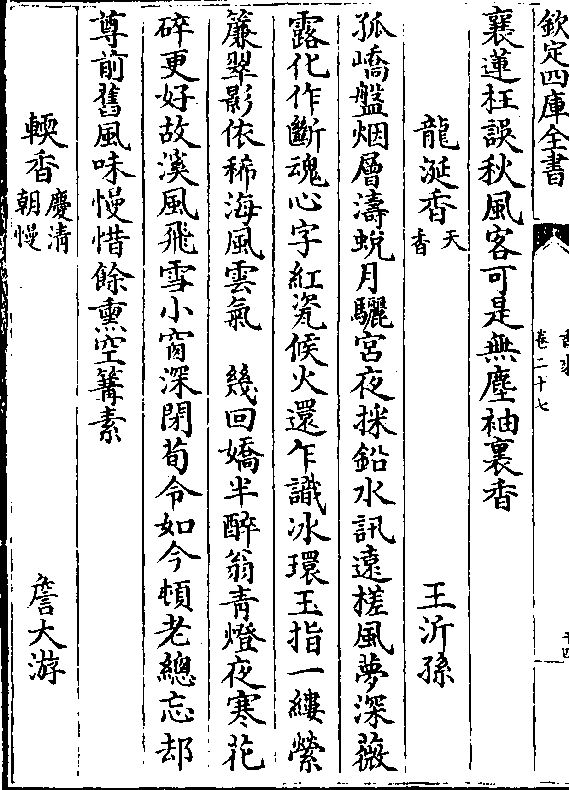 欽定四庫全書
卷二十七
裏蓮枉誤秋風客可是無塵袖裏香
龍涎香 天香 王沂孫
孤嶠盤烟層濤蛻月驪宮夜採鉛水訊遠槎風夢深薇
露化作斷魂心字紅瓷候火還乍識冰環玉指一縷縈
簾翠影依稀海風雲氣　幾回嬌半醉翁青燈夜寒花
碎更好故溪風飛雪小窗深閉荀令如今頓老總忘却
尊前舊風味慢惜餘熏空篝素
輭香 慶清朝慢 詹大游